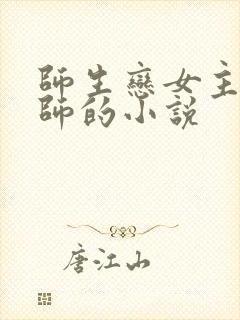 師生戀女主
師的小說
唐江山